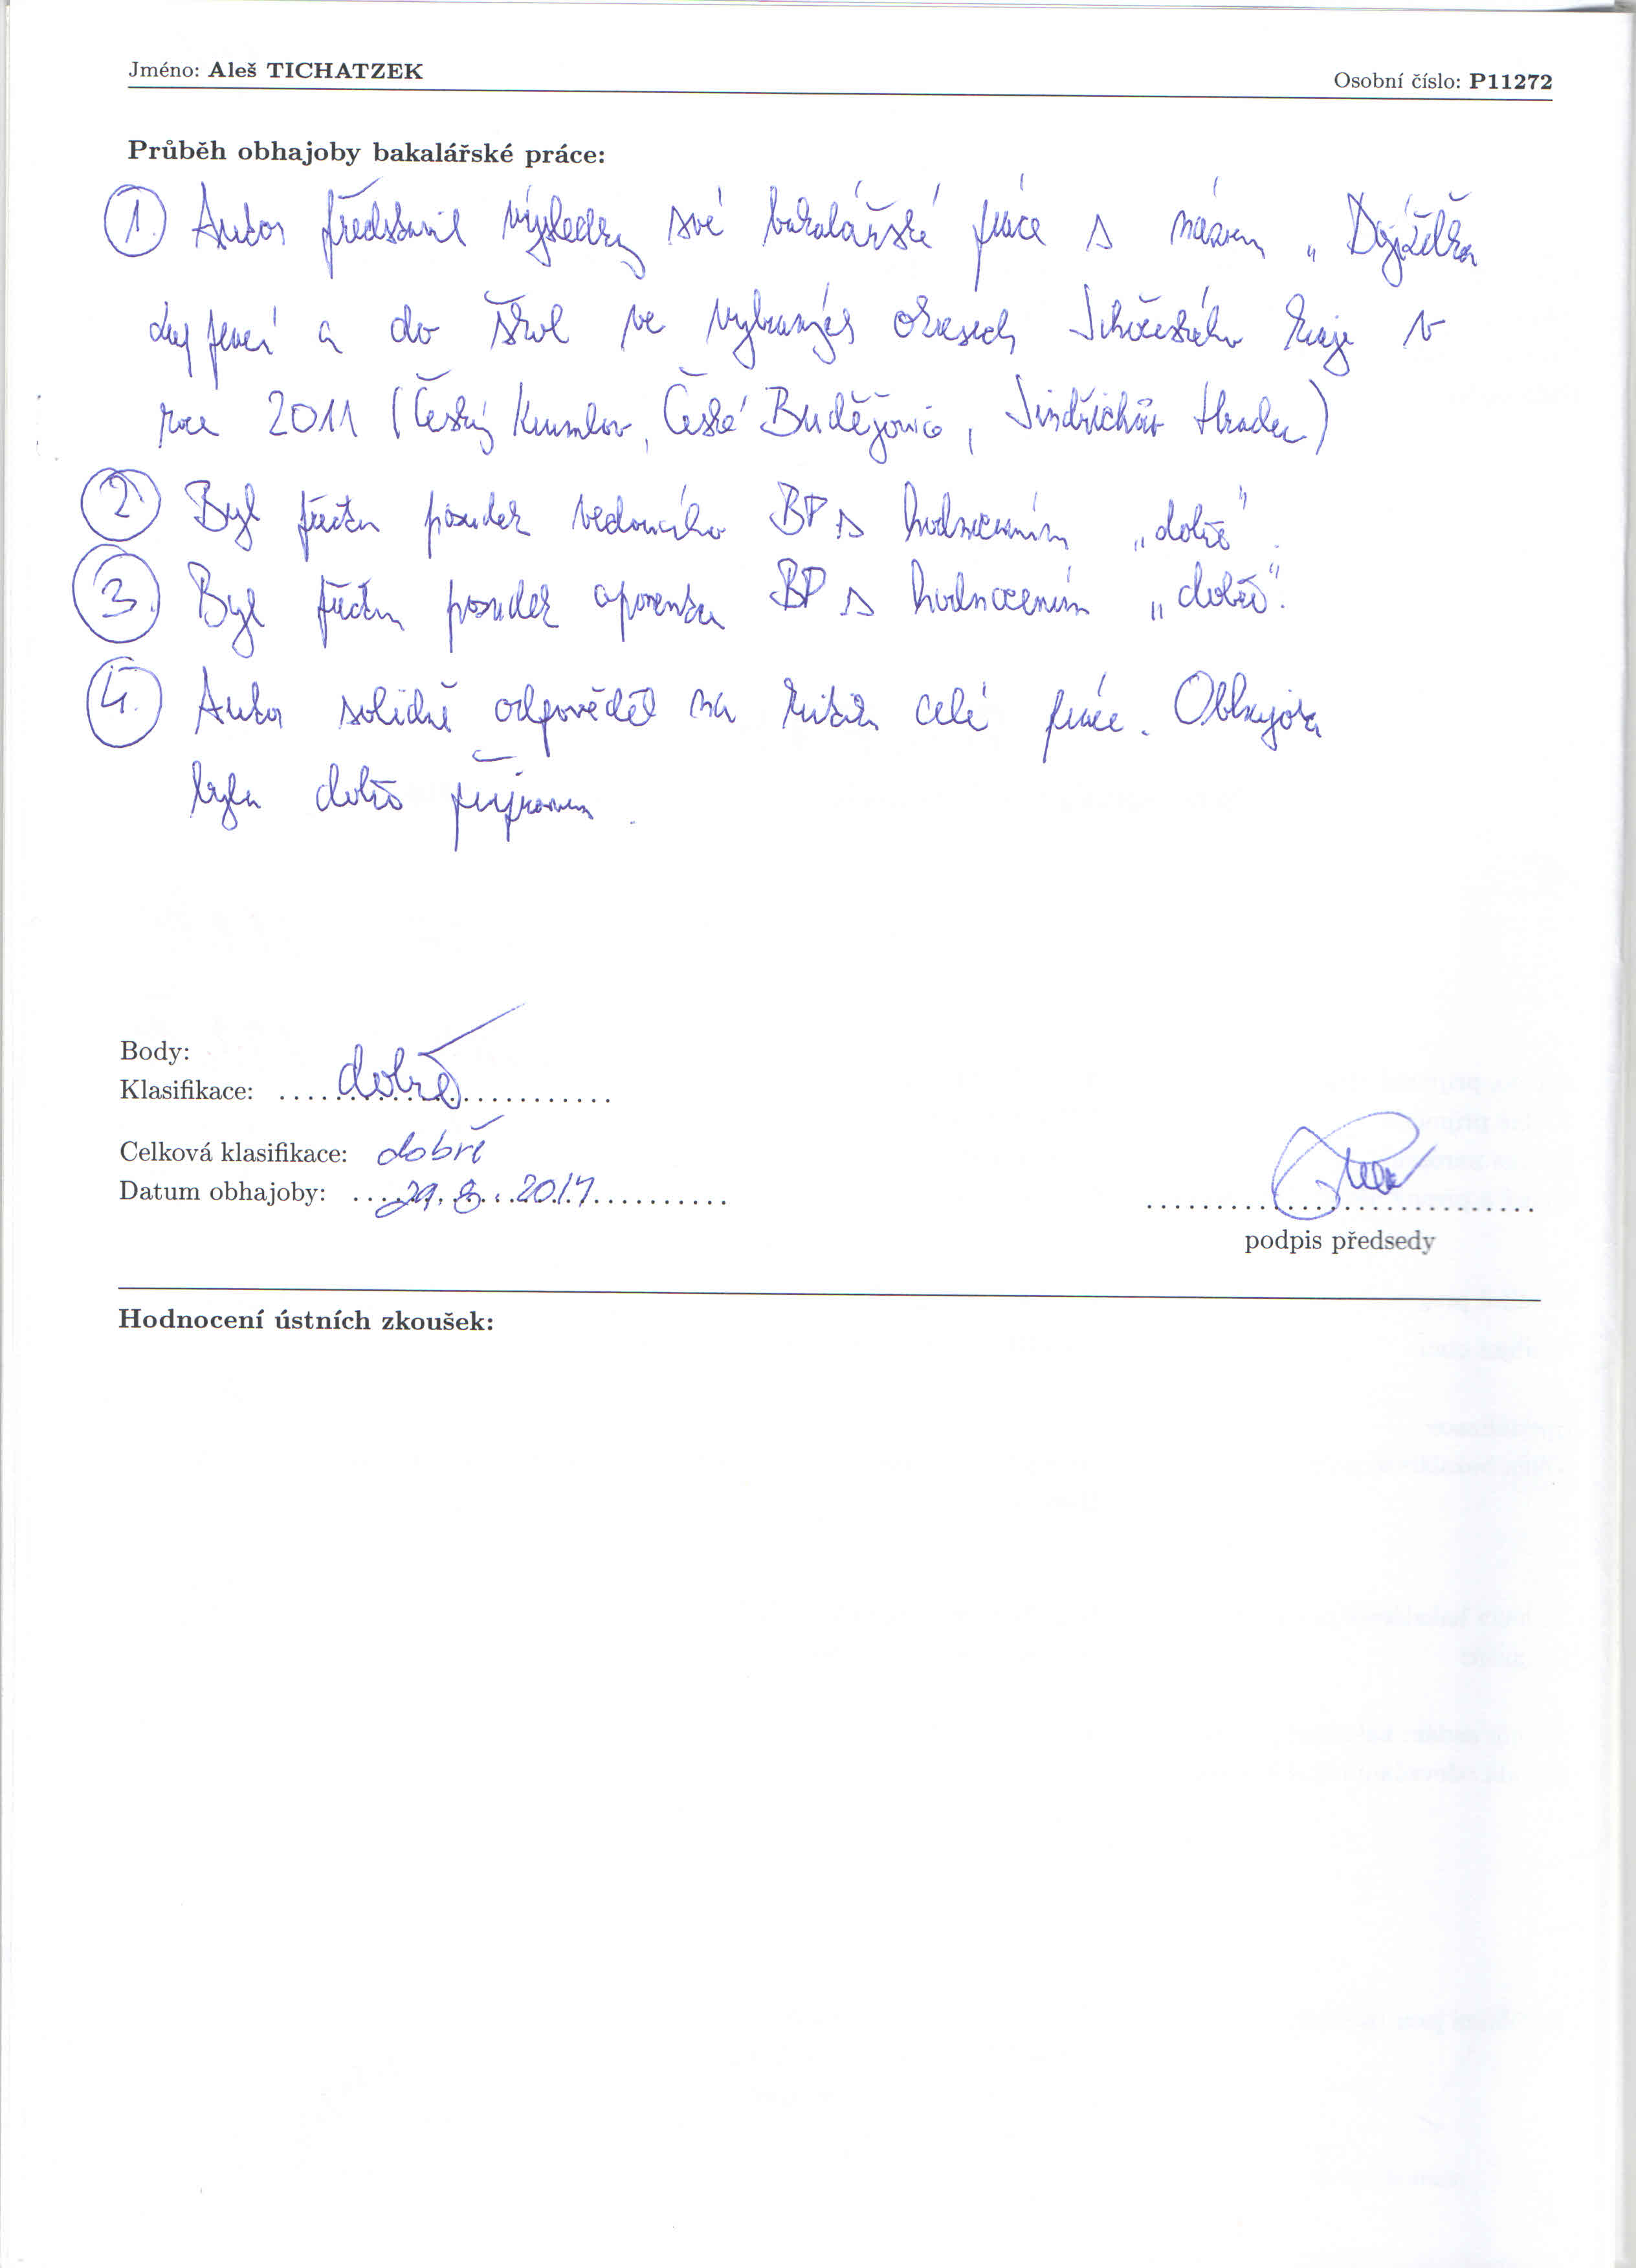 Jméno: Aleš TICHATZEK
Osobní číslo: P11272
Průběh obhajoby bakalářské práce:
1. Autor představil výsledky své bakalářské práce s názvem „Dojížďka
do a do škol ve vybraných okresech Jihočeského kraje v
roce 2011 (Český Krumlov, České Budějovice, Jindřichův Hradec)
2. Byl přečten posudek vedoucího BP s hodnocením „dobře“.
3. Byl přečten posudek oponenta BP s hodnocením „dobře“.
4. Autor solidně odpověděl na kritiku celé práce. Obhajoba
byla dobře připravena.
Body:
Klasifikace: dobře
Celková klasifikace: dobře
Datum obhajoby: 29. 8. 2014
podpis předsedy
Hodnocení ústních zkoušek: